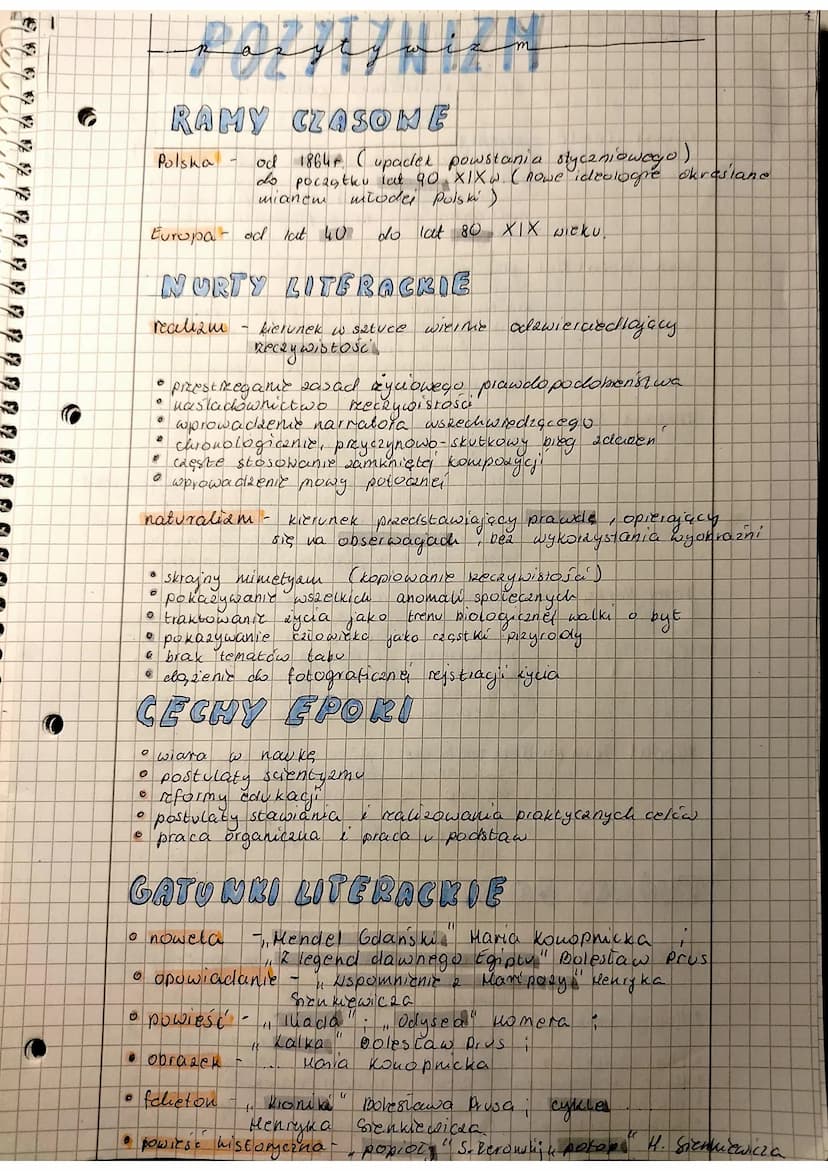 1
POZYTYWIZM
pozytywizm
RAMY CZASOWE
Polska - od 1864r. (upadek powstania styczniowego)
do początku lat 90 XIXw. (nowe ideologie określane
mianem młodej Polski)
Europa - od lat 40 do lat 80 XIX wieku.
NURTY LITERACKIE
realizm - kierunek w sztuce wiernie odzwierciedlający
rzeczywistość
• przestrzeganie zasad życiowego prawdopodobieństwa
• naśladownictwo rzeczywistości
• wprowadzenie narratora wszechwiedzącego
• chronologicznie, przyczynowo-skutkowy bieg zdarzeń
• częste stosowanie zamkniętej kompozycji
• wprowadzenie mowy potocznej
naturalizm - kierunek przedstawiający prawdę, opierający
się na obserwacjach, bez wykorzystania wyobraźni
• skrajny mimetyzm (kopiowanie rzeczywistości)
• pokazywanie wszelkich anomali społecznych
• traktowanie życia jako trenu biologicznej walki o byt
• pokazywanie człowieka jako cząstki przyrody
• brak tematów tabu
• dążenie do fotograficznej rejstracji życia
CECHY EPOKI
• wiara w naukę
• postulaty scientyzmu
• reformy edukacji
• postulaty stawiania i realizowania praktycznych celów
• praca organiczna i praca u podstaw
GATUNKI LITERACKIE
• nowela - „Mendel Gdański" Maria Konopnicka ;
„Z legend dawnego Egiptu" Bolesław Prus
• opowiadanie - „Wspomnienie z Maripozy" Henryka
Sienkiewicza
• powieść - „Iliada" ; „Odyseja" Homera ;
„Lalka" Bolesław Prus ;
• obrazek - ... Maria Konopnicka
• felieton - „Kroniki" Bolesława Prusa ; cykle
Henryka Sienkiewicza
• powieść historyczna - „popioły" S. Żeromski „potop" H. Sienkiewicza